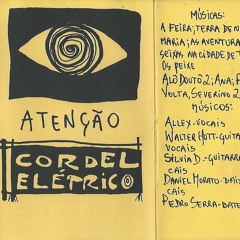 ATENÇÃO
CORDEL
ELÉTRICO
MÚSICAS:
A FEIRA; TERRA DE N
MARIA; AS AVENTURA
SEIXAS NA CIDADE DE T
OS PEIXE
ALÔ DOUTÔ 2; ANA; F
VOLTA, SEVERINO 2
MÚSICOS:
ALLEX-VOCAIS
WALTER HOTT-GUITA
VOCAIS
SILVIA D.-GUITARRA
CAIS
DANIEL MORATO-BAIX
CAIS
PEDRO SERRA-BATE